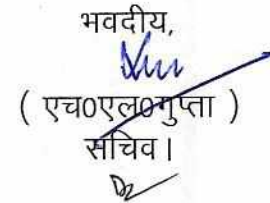 भवदीय,
( एच0एल0गुप्ता )
सचिव।